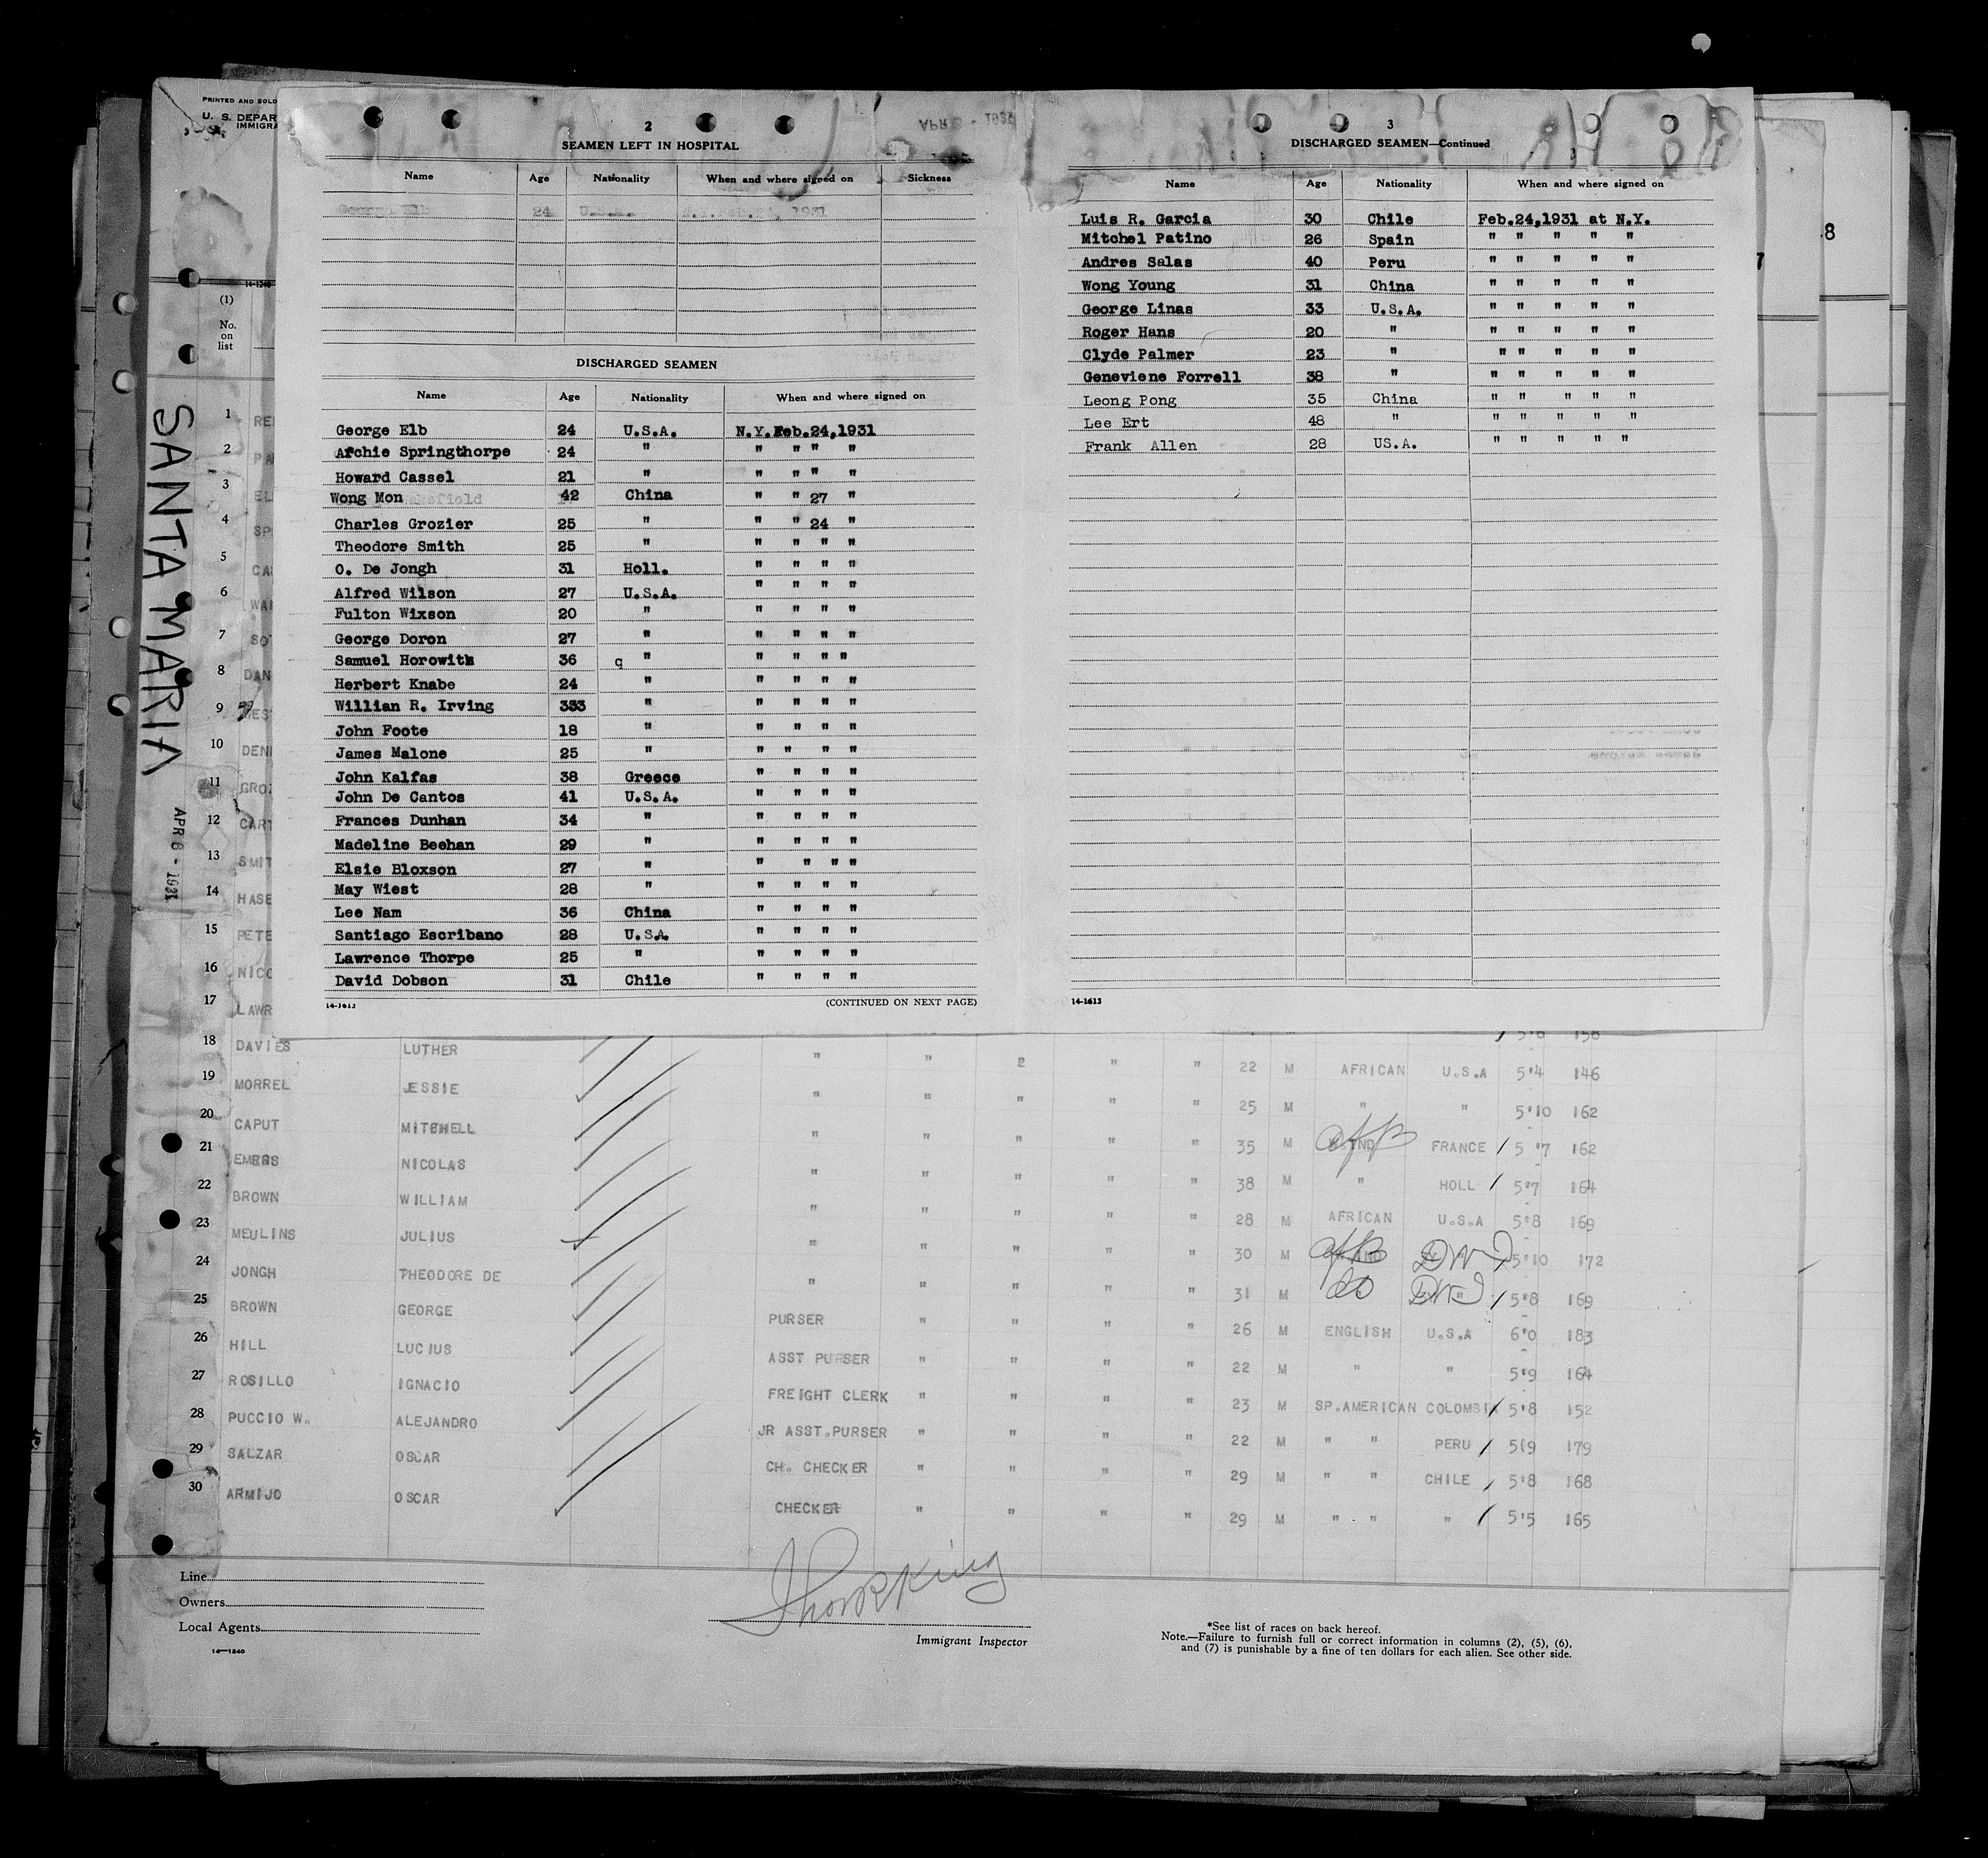 PRINTED AND SOLD
U. S. DEPAR
IMMIGRA
14-1240
(1)
No.
on
list
SANTA MARIA
APR 6 - 1931
2
SEAMEN LEFT IN HOSPITAL
Name Age Nationality When and where signed on Sickness
George Elb 24 U.S.A. N.Y.Feb.24, 1931
DISCHARGED SEAMEN
Name Age Nationality When and where signed on
George Elb 24 U.S.A. N.Y.Feb.24,1931
Archie Springthorpe 24 " " " " "
Howard Cassel 21 " " " " "
Wong Mon 42 China " " 27 "
Charles Grozier 25 " " " 24 "
Theodore Smith 25 " " " " "
O. De Jongh 31 Holl. " " " "
Alfred Wilson 27 U.S.A. " " " "
Fulton Wixson 20 " " " " "
George Doron 27 " " " " "
Samuel Horowitz 36 q " " " " "
Herbert Knabe 24 " " " " "
Willian R. Irving 333 " " " " "
John Foote 18 " " " " "
James Malone 25 " " " " "
John Kalfas 38 Greece " " " "
John De Cantos 41 U.S.A. " " " "
Frances Dunhan 34 " " " " "
Madeline Beehan 29 " " " " "
Elsie Bloxson 27 " " " " "
May Wiest 28 " " " " "
Lee Nam 36 China " " " "
Santiago Escribano 28 U.S.A. " " " "
Lawrence Thorpe 25 " " " " "
David Dobson 31 Chile " " " "
14-1613 (CONTINUED ON NEXT PAGE)
3
DISCHARGED SEAMEN—Continued
Name Age Nationality When and where signed on
Luis R. Garcia 30 Chile Feb.24,1931 at N.Y.
Mitchel Patino 26 Spain " " " " "
Andres Salas 40 Peru " " " " "
Wong Young 31 China " " " " "
George Linas 33 U.S.A. " " " " "
Roger Hans 20 " " " " " "
Clyde Palmer 23 " " " " " "
Geneviene Forrell 38 " " " " " "
Leong Pong 35 China " " " " "
Lee Ert 48 " " " " " "
Frank Allen 28 US.A. " " " " "
14-1613
8
7
1 RE
2 PA
3 EL
4 SP
5 CA
6 WA
7 SOT
8 DAN
9 WES
10 DEN
11 GROZ
12 CART
13 SMIT
14 HASE
15 PETE
16 NICO
17 LAWR
5'8 158
18 DAVIES LUTHER " " 2 " " 22 M AFRICAN U.S.A 5'4 146
19 MORREL JESSIE " " " " " 25 M " " 5'10 162
20 CAPUT MITCHELL " " " " " 35 M W.IND Afr B FRANCE / 5'7 162
21 EMERS NICOLAS " " " " " 38 M " HOLL / 5'7 164
22 BROWN WILLIAM " " " " " 28 M AFRICAN U.S.A 5'8 169
23 MEULINS JULIUS " " " " " 30 M Afr B DWI / 5'10 172
24 JONGH THEODORE DE " " " " " 31 M do DWI / 5'8 169
25 BROWN GEORGE PURSER " " " " 26 M ENGLISH U.S.A 6'0 183
26 HILL LUCIUS ASST PURSER " " " " 22 M " " 5'9 164
27 ROSILLO IGNACIO FREIGHT CLERK " " " " 23 M SP.AMERICAN COLOMBIA 5'8 152
28 PUCCIO W. ALEJANDRO JR ASST.PURSER " " " " 22 M " " PERU / 5'9 179
29 SALZAR OSCAR CH. CHECKER " " " " 29 M " " CHILE / 5'8 168
30 ARMIJO OSCAR CHECKER " " " " 29 M " " " / 5'5 165
Line
Owners
Local Agents
14—1240
Immigrant Inspector
*See list of races on back hereof.
Note.—Failure to furnish full or correct information in columns (2), (5), (6),
and (7) is punishable by a fine of ten dollars for each alien. See other side.